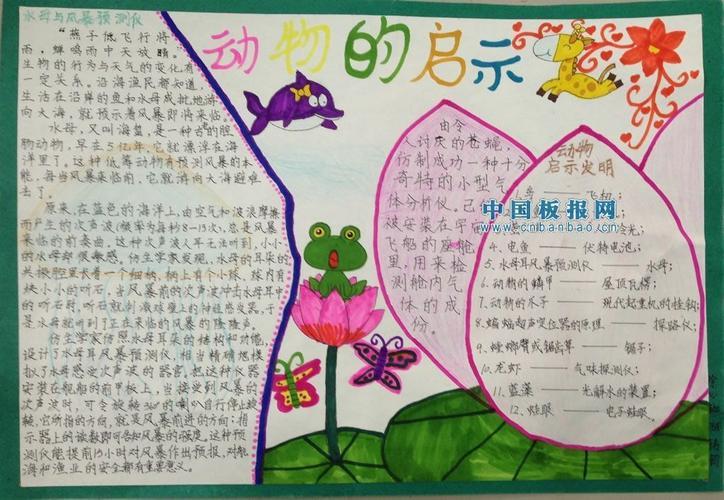 水母与风暴预测仪
动物的启示
"燕子低飞行将
雨，蝉鸣雨中天放晴。"
生物的行为与天气的变化有
一定关系。沿海渔民都知道，
生活在沿岸的鱼和水母成批地游
向大海，就预示着风暴即将来临。
水母，又叫海蜇，是一种古老的腔
肠动物，早在5亿年，它就漂浮在海
洋里了。这种低等动物有预测风暴的本
能，每当风暴来临前，它就游向大海避难
去了。
原来，在蓝色的海洋上，由空气和波浪摩擦
而产生的次声波（频率为每秒8—13次），总是风暴
来临的前奏曲。这种次声波人耳无法听到，小小
的水母却很敏感。仿生学家发现，水母的耳朵的
共振腔里长着一个细柄，柄上有个小球，球内有
块小小的听石，当风暴前的次声波冲击水母耳中
的听石时，听石就刺激球壁上的神经感受器，于
是水母就听到了正在来临的风暴的隆隆声。
仿生学家仿照水母耳朵的结构和功能，
设计了水母耳风暴预测仪，相当精确地模
拟了水母感受次声波的器官。把这种仪器
安装在舰船的前甲板上，当接受到风暴的
次声波时，可令旋转360°的喇叭自行停止旋
转，它所指的方向，就是风暴前进的方向；指
示器上的读数即可告知风暴的强度。这种预
测仪能提前15小时对风暴作出预报，对航
海和渔业的安全都有重要意义。
由令
人讨厌的苍蝇，
仿制成功一种十分
奇特的小型气
体分析仪。已
被安装在宇宙
飞船的座舱
里，用来检
测舱内气
体的成
份。
动物
启示发明
1.鸟——飞机；
中国板报网
www.cnbanbao.cn
冷光；
4.电鱼——伏特电池；
5.水母耳风暴预测仪——水母；
6.动物的鳞甲——屋顶瓦楞；
7.动物的爪子——现代起重机的挂钩；
8.蝙蝠超声定位器的原理——探路仪；
9.螳螂臂或锯齿草——锯子；
10.龙虾——气味探测仪；
11.蓝藻——光解水的装置；
12.蛙眼——电子蛙眼。